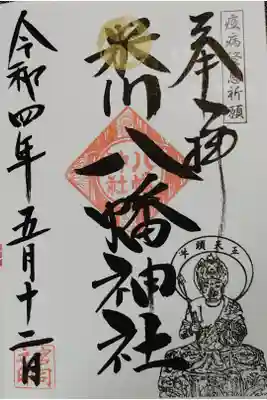 疫病終息祈願
奉拝
米川八幡神社
八幡神社
令和四年五月十二日
牛頭天王